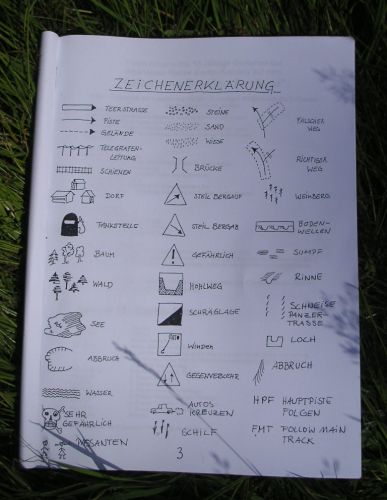 ZEICHENERKLÄRUNG
TEERSTRASSE
PISTE
GELÄNDE
TELEGRAFEN-
LEITUNG
SCHIENEN
DORF
TANKSTELLE
BAUM
WALD
SEE
ABBRUCH
WASSER
SEHR
GEFÄHRLICH
PASSANTEN
STEINE
SAND
WIESE
BRÜCKE
STEIL BERGAUF
STEIL BERGAB
GEFÄHRLICH
HOHLWEG
SCHRÄGLAGE
WINDEN
GEGENVERKEHR
AUTOS
KREUZEN
SCHILF
FALSCHER
WEG
RICHTIGER
WEG
WEINBERG
BODEN-
WELLEN
SUMPF
RINNE
SCHNEISE
PANZER-
TRASSE
LOCH
ABBRUCH
HPF HAUPTPISTE
FOLGEN
FMT FOLLOW MAIN
TRACK
3